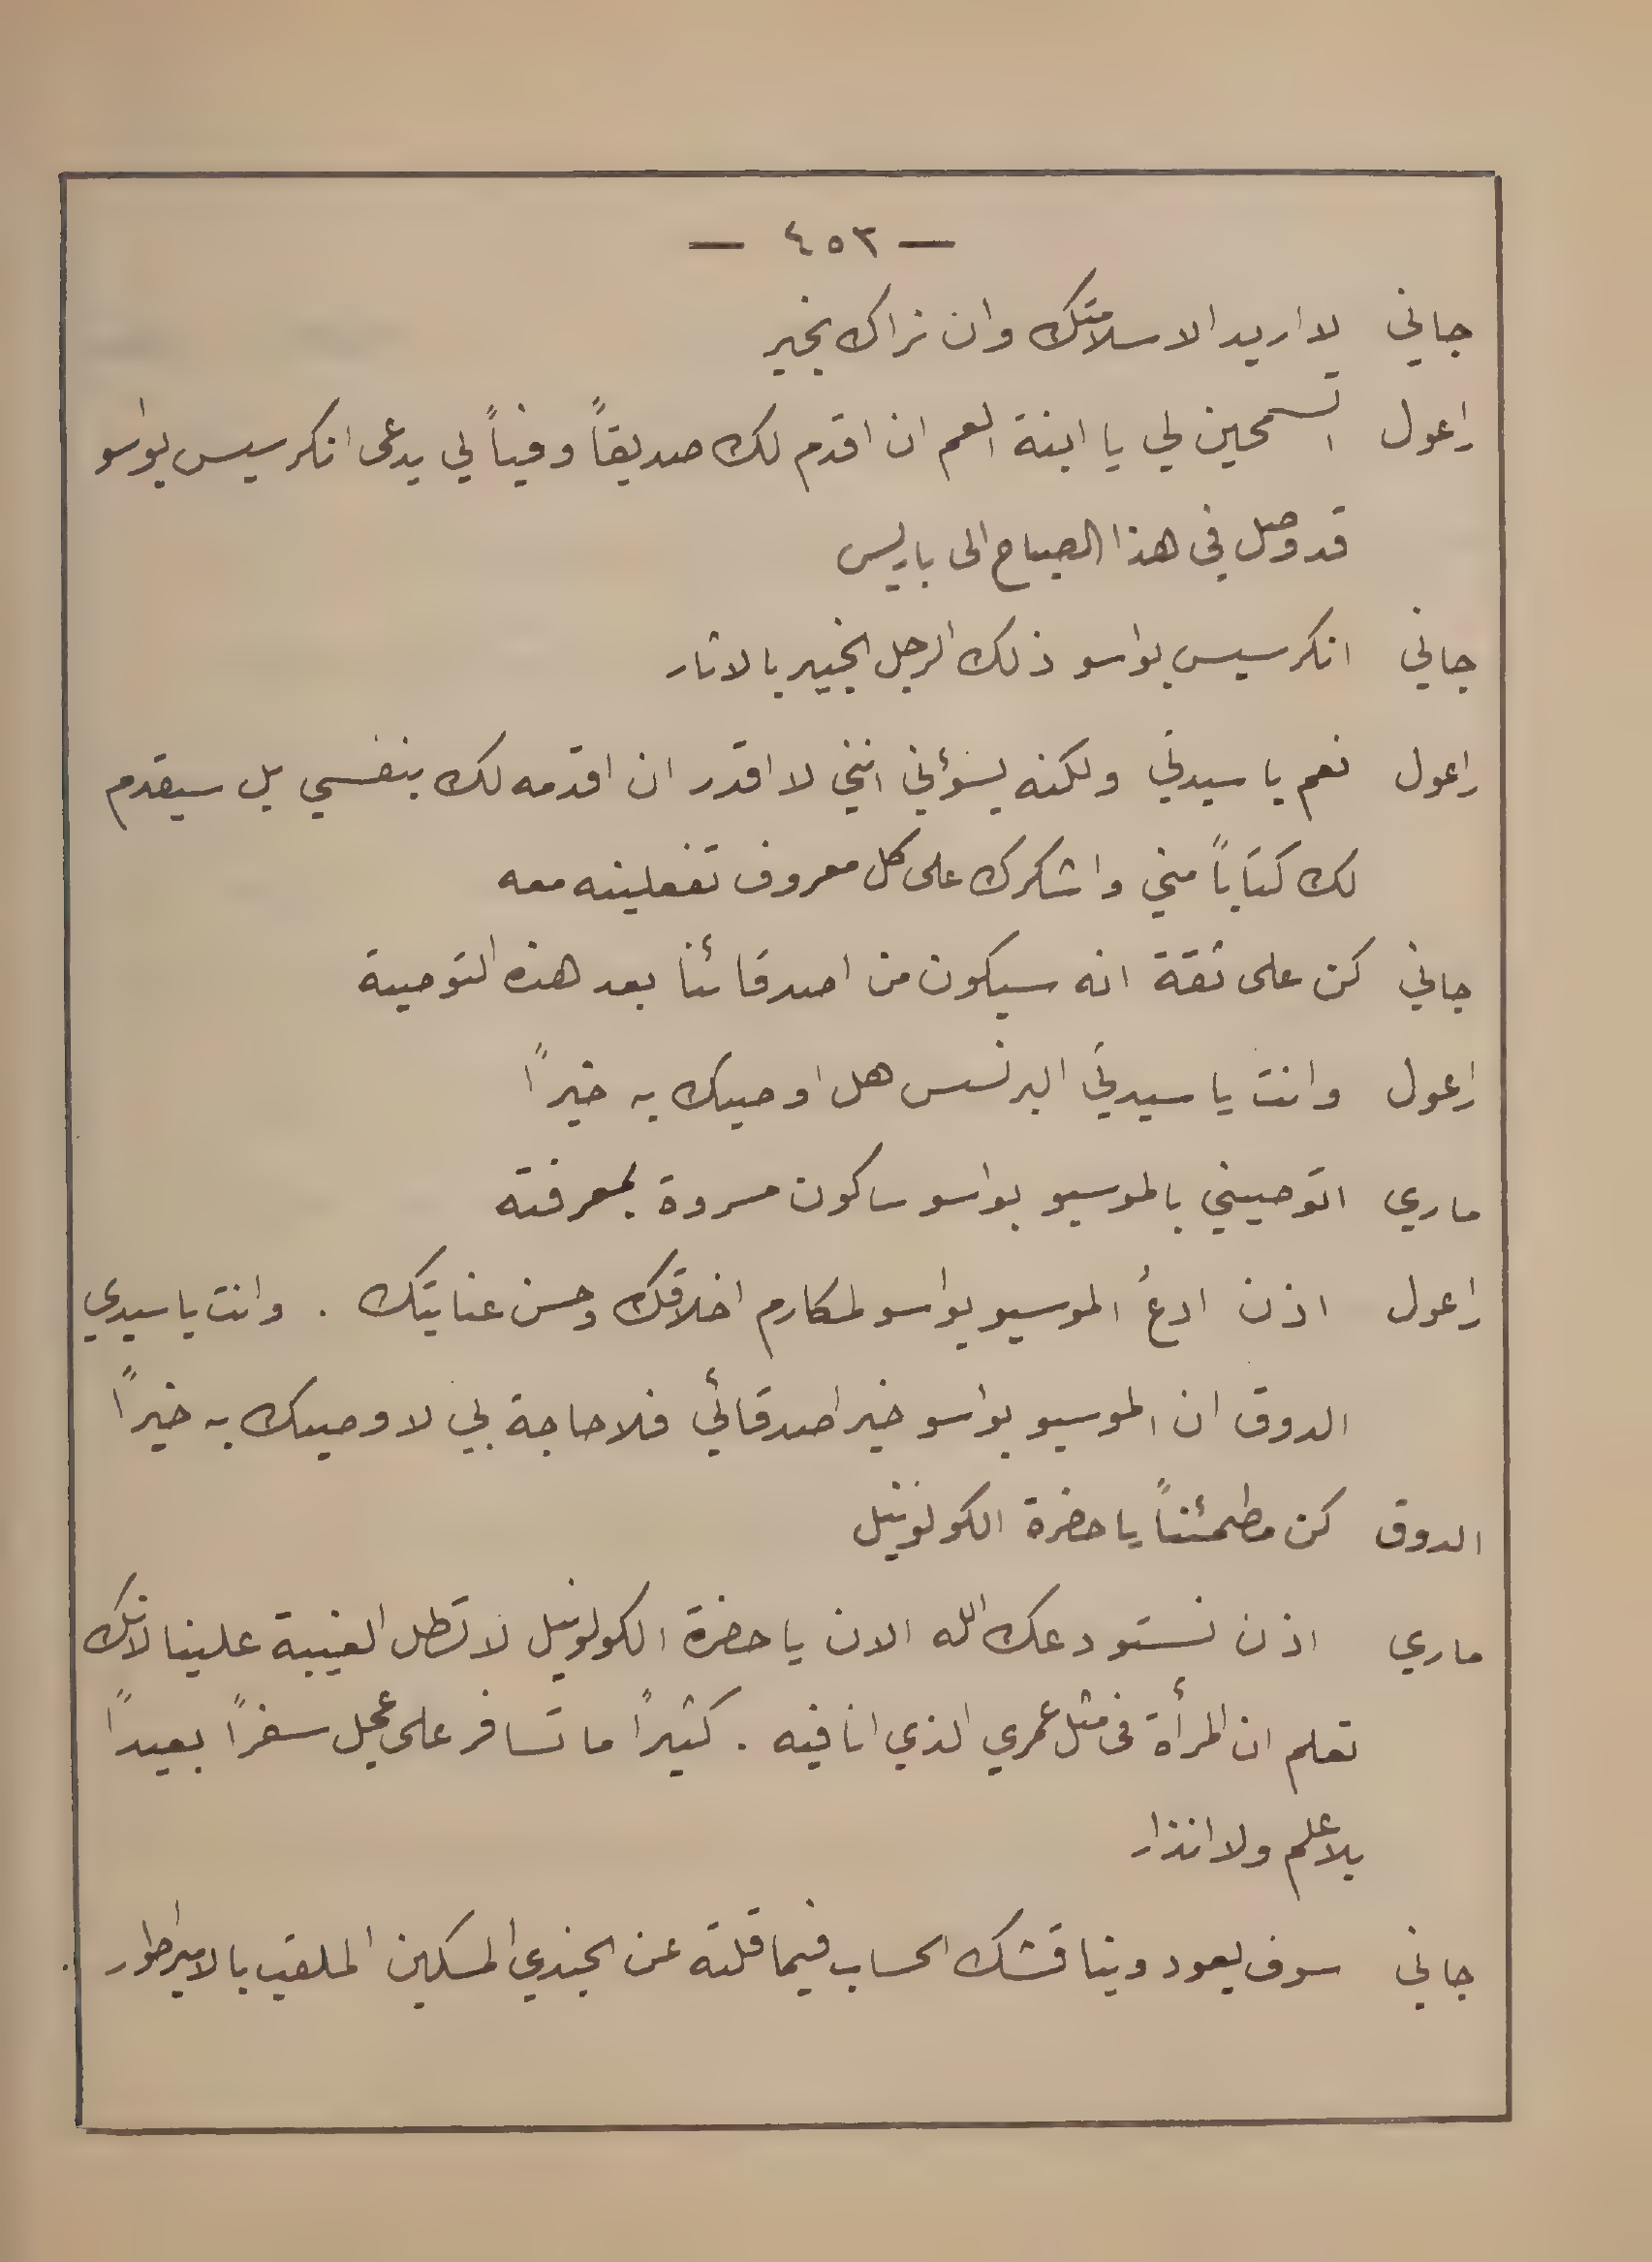 — ٤٥٣ —
جاني لا اريد الا سلامتك وان نراك بخير
راعول اتسمحين لي يا ابنة العم ان اقدم لك صديقاً وفياً لي يدعى انكرسيس بواسو
قد وصل في هذا الصباح الى باريس
جاني انكرسيس بواسو ذلك الرجل الخبير بالاثار
راعول نعم يا سيدتي ولكنه يسؤني انني لا اقدر ان اقدمه لك بنفسي بل سيقدم
لك كتاباً مني واشكرك على كل معروف تفعلينه معه
جاني كن على ثقة انه سيكون من اصدقائنا بعد هذه التوصية
راعول وانت يا سيدتي البرنسس هل اوصيك به خيراً
ماري اتوصيني بالموسيو بواسو ساكون مسروة بمعرفته
راعول اذن ادعُ الموسيو بواسو لمكارم اخلاقك وحسن عنايتك . وانت يا سيدي
الدوق ان الموسيو بواسو خير اصدقائي فلا حاجة بي لاوصيك به خيراً
الدوق كن مطمئناً يا حضرة الكولونيل
ماري اذن نستودعك الله الان يا حضرة الكولونيل لا تطل الغيبة علينا لانك
تعلم ان المرأة في مثل عمري الذي انا فيه . كثيراً ما تسافر على عجل سفراً بعيداً
بلا علم ولا انذار
جاني سوف يعود ويناقشك الحساب فيما قلته عن الجندي المسكين الملقب بالامبراطور .